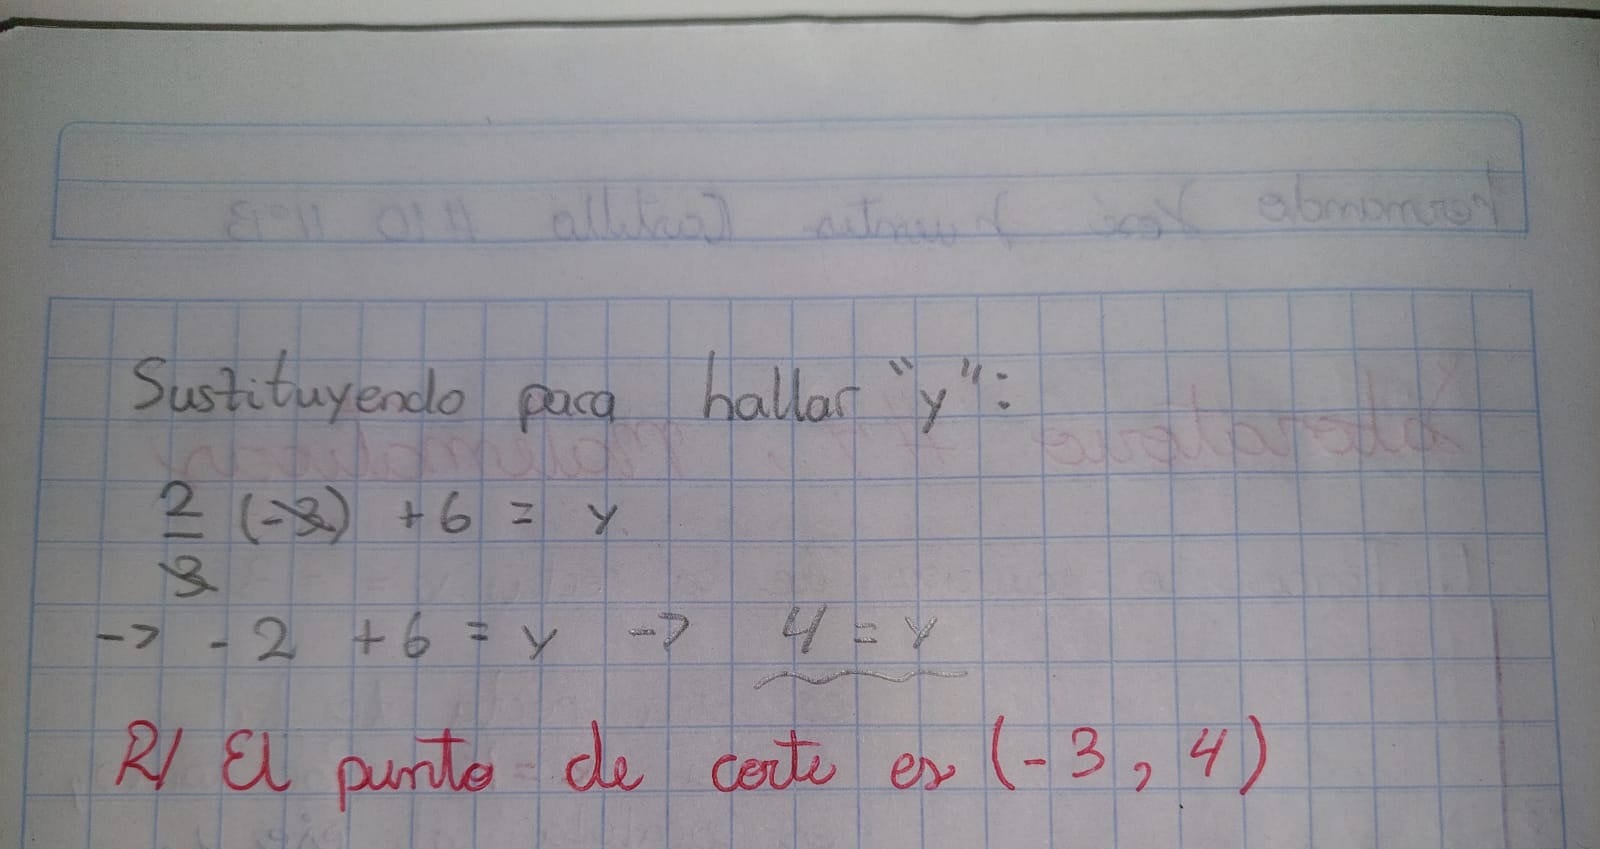 Sustituyendo para hallar "y":
2/3 (-3) + 6 = y
-> -2 + 6 = y -> 4 = y
R/ El punto de corte es (-3, 4)